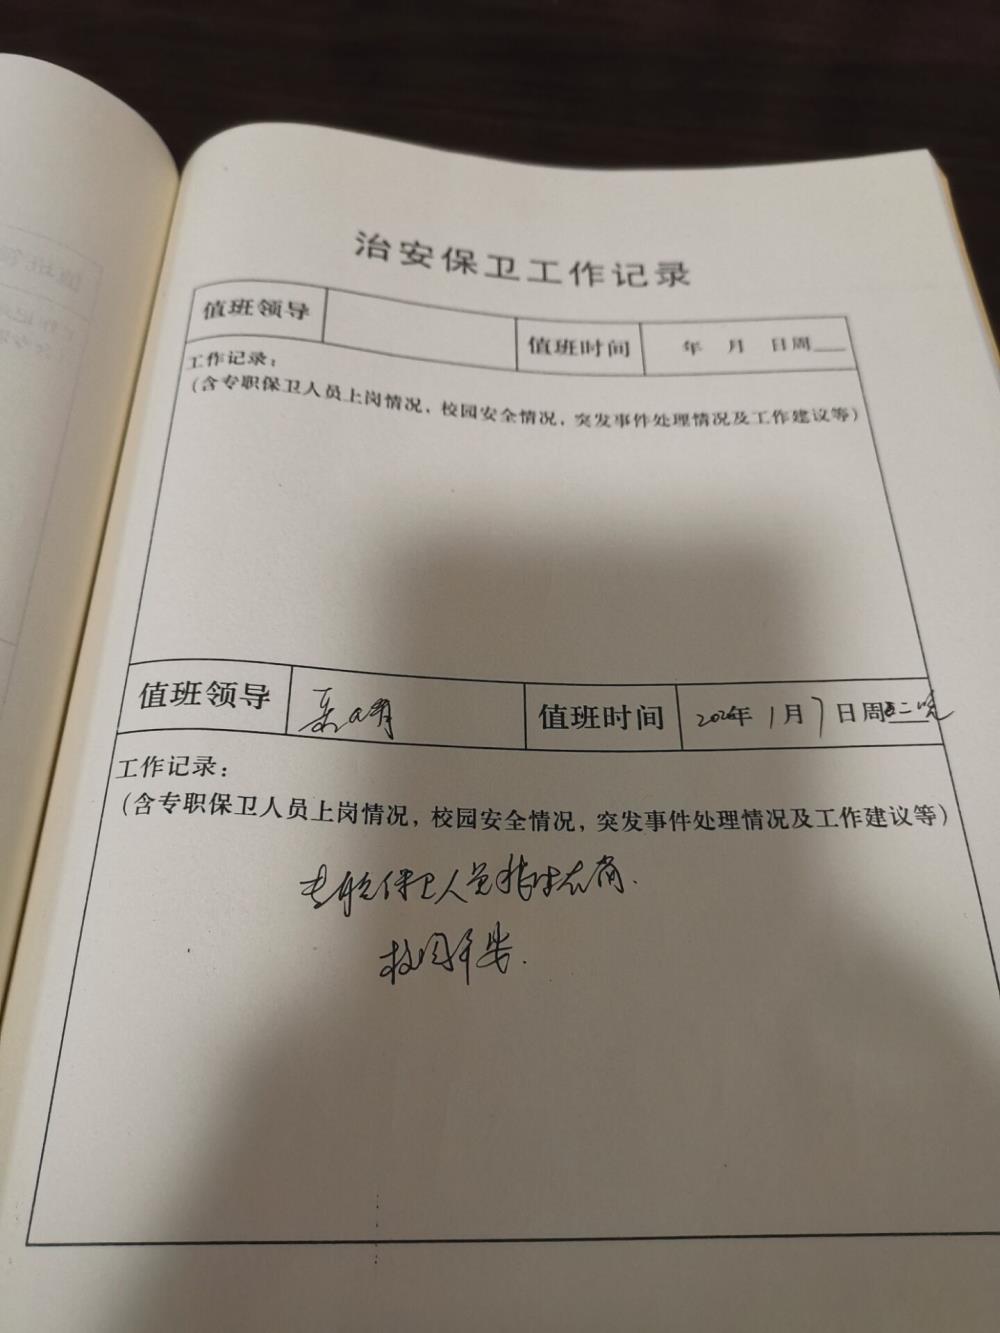 治安保卫工作记录
值班领导 值班时间 年 月 日周
工作记录：
（含专职保卫人员上岗情况，校园安全情况，突发事件处理情况及工作建议等）
值班领导 值班时间 2026年1月7日周二晚
工作记录：
（含专职保卫人员上岗情况，校园安全情况，突发事件处理情况及工作建议等）
专职保卫人员按时在岗.
校园平安.